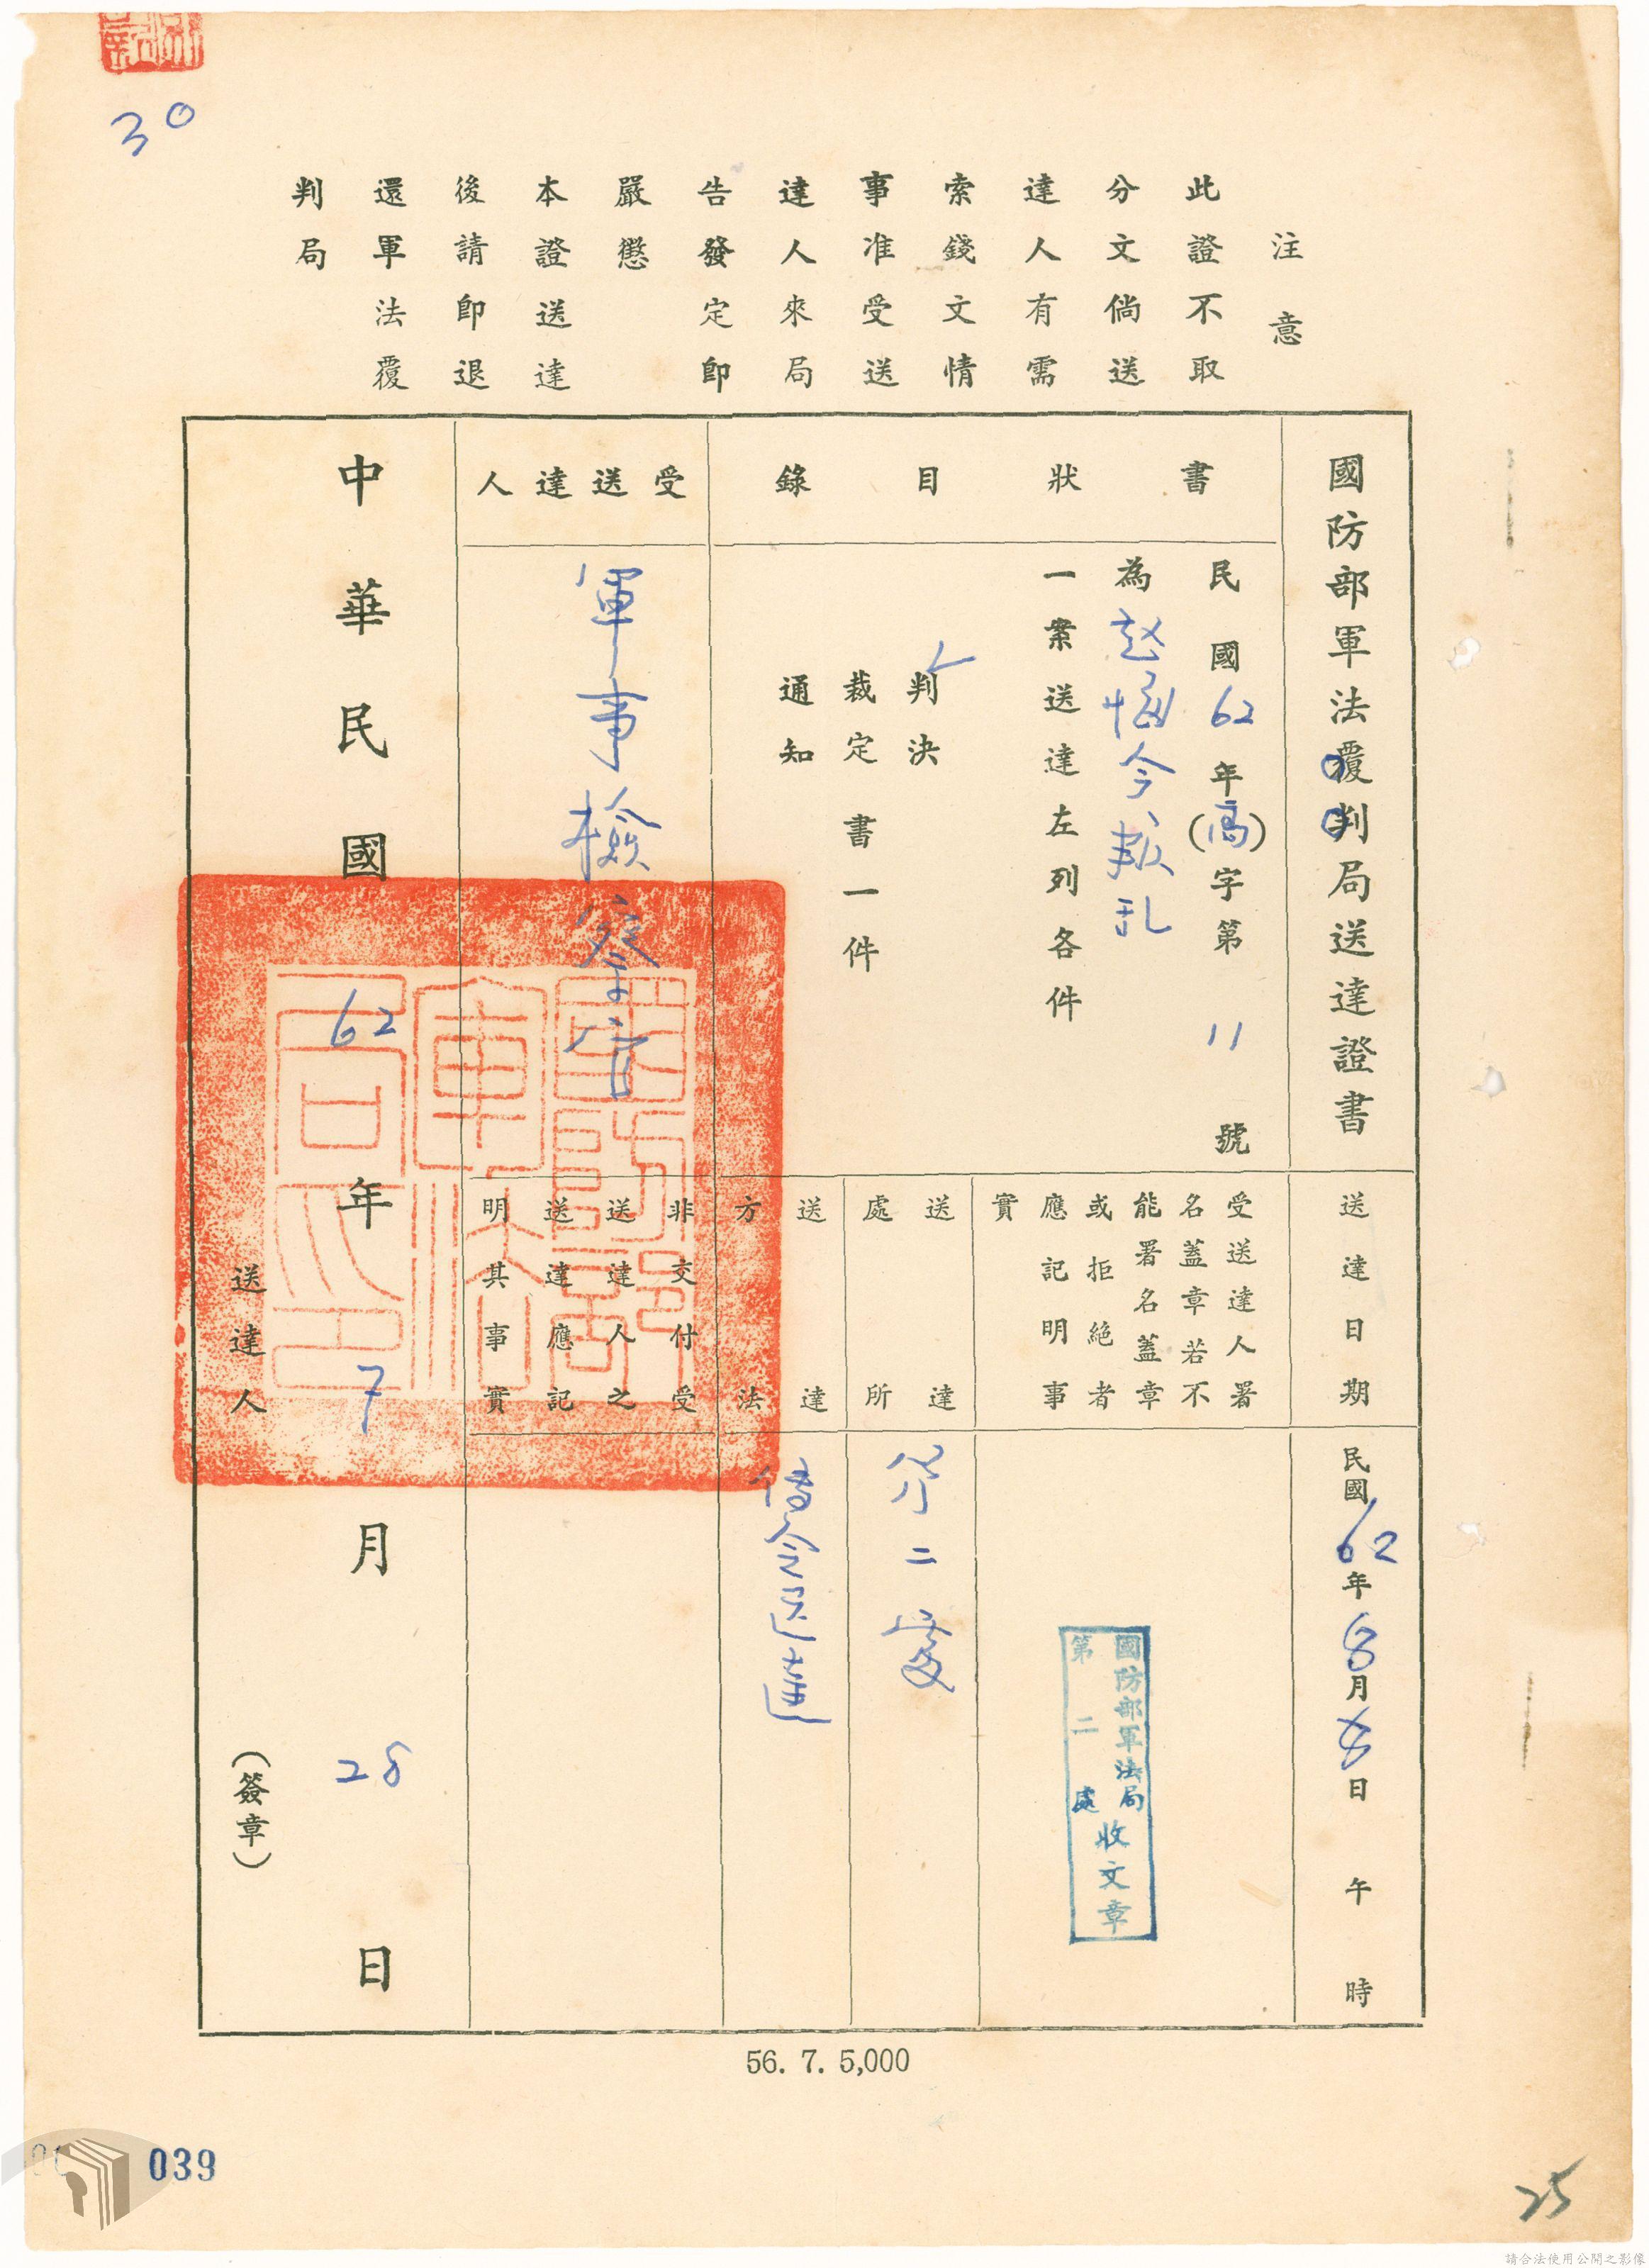 30
注意
此證不取
分文倘送
達人有需
索錢文情
事准受送
達人來局
告發定即
嚴懲
本證送達
後請即退
還軍法覆
判局
國防部軍法覆判局送達證書
書狀目錄
民國62年(高)字第11號
為趙惱令叛乱
一案送達左列各件
判決
裁定書一件
通知
受送達人
軍事檢察官
送達日期
民國62年8月8日午時
受送達人署
名蓋章若不
能署名蓋章
或拒絕者
應記明事
實
國防部軍法局
第二處
收文章
送達
處所
第二處
送達
方法
傳令送達
非交付受
送達人之
送達應記
明其事實
中華民國62年7月28日
送達人
(簽章)
國防部軍法局印
56. 7. 5,000
039
25
請合法使用公開之影像